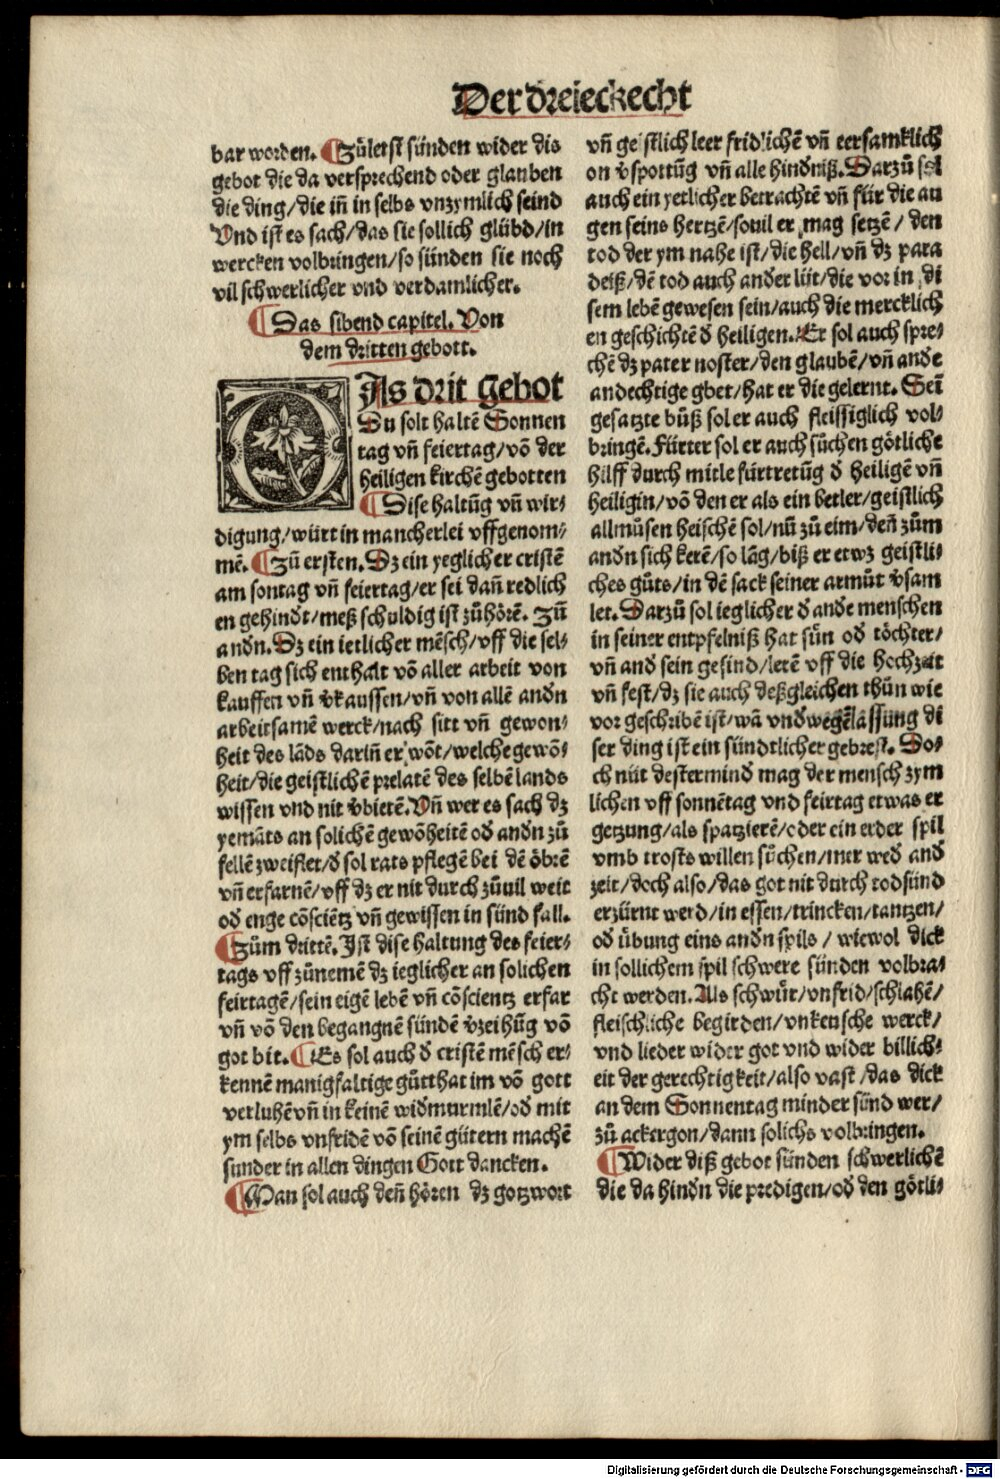 Der dreieckecht
bar worden. Zůletst sünden wider dis
gebot die da versprechend oder glauben
die ding/die iñ in selbs vnzymlich seind
Vnd ist es sach/das sie sollich glübd/in
wercken volbringen/so sünden sie noch
vil schwerlicher vnd verdamlicher.
Das sibend capitel. Von
dem dritten gebott.
DAs drit gebot
Du solt haltē Sonnen
tag vñ feiertag/vō der
heiligen kirchē gebotten
Dise haltūg vñ wir⸗
digung/würt in mancherlei vffgenom⸗
mē. Zů ersten. Dz ein yeglicher cristē
am sontag vñ feiertag/er sei dañ redlich
en gehindt/meß schuldig ist zůhörē. Zů
andn. Dz ein ietlicher mēsch/vff die sel⸗
ben tag sich enthalt vō aller arbeit von
kauffen vñ vkauffen/vñ von allē andn
arbeitsamē werck/nach sitt vñ gewon⸗
heit des lāds dariñ er wōt/welche gewō⸗
heit/die geistlichē prelatē des selbē lands
wissen vnd nit vbietē. Vñ wer es sach dz
yemāts an solichē gewōheitē od andn zů
fellē zweiflet/d sol rats pflegē bei dē öbrē
vñ erfarnē/vff dz er nit durch zůuil weit
od enge cōsciētz vñ gewissen in sünd fall.
Zům drittē. Ist dise haltung des feier⸗
tags vff zůnemē dz ieglicher an solichen
feirtagē/sein eigē lebē vñ cōscientz erfar
vñ vō den begangnē sündē vzeihūg vō
got bit. Es sol auch d cristē mēsch er⸗
kennē manigfaltige gůtthat im vō gott
verluhē vñ in keinē widmurmlē/od mit
ym selbs vnfridē vō seinē gütern machē
sunder in allen dingen Gott dancken.
Man sol auch deñ hören dz gotzwort
vñ geistlich leer fridlichē vñ eersamklich
on vspottūg vñ alle hindniß. Darzů sol
auch ein yetlicher betrachtē vñ für die au
gen seins hertzē/souil er mag setzē/ den
tod der ym nahe ist/die hell/vñ dz para
deiß/dē tod auch ander lüt/die vor in di
sem lebē gewesen sein/auch die mercklich
en geschichtē d heiligen. Er sol auch spre⸗
chē dz pater noster/den glaubē/vñ ande
andechtige gbet/hat er die gelernt. Sein
gesatzte bůß sol er auch fleissiglich vol⸗
bringē. Fürter sol er auch sůchen götliche
hilff durch mitle fürtretūg d heiligē vñ
heiligin/vō den er als ein betler/geistlich
allmůsen heischē sol/nū zů eim/deñ zům
andn sich kerē/so lāg/biß er etwz geistli⸗
ches gůts/in dē sack seiner armůt vsam
let. Darzů sol ieglicher d ande menschen
in seiner entpfelniß hat sün od töchter/
vñ and sein gesind/lerē vff die hochzeit
vñ fest/dz sie auch deßgleichen thůn wie
vor geschribē ist/wā vndwegēlassung di
ser ding ist ein sündtlicher gebrest. Do⸗
ch nüt destermind mag der mensch zym
lichen vff sonnētag vnd feirtag etwas er
getzung/als spatzierē/oder ein erder spil
vmb trosts willen sůchen/mer wed and
zeit/doch also/das got nit durch todsünd
erzürnt werd/in essen/trincken/tantzen/
od übung eins andn spils / wiewol dick
in sollichem spil schwere sünden volbra⸗
cht werden. Als schwür/vnfrid/schlahē/
fleischliche begirden/vnkeusche werck/
vnd lieder wider got vnd wider billich⸗
eit der gerechtigkeit/also vast /das dick
an dem Sonnentag minder sünd wer/
zů ackergon/dann solichs volbringen.
Wider diß gebot sünden schwerlichē
die da hindn die predigen/od den götli⸗
Digitalisierung gefördert durch die Deutsche Forschungsgemeinschaft - DFG